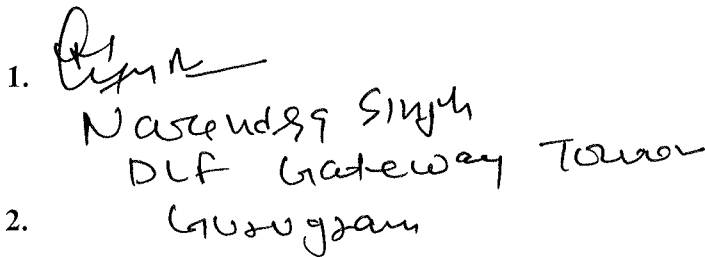 1.
Narendra Singh
DLF Gateway Tower
2. Gurugram